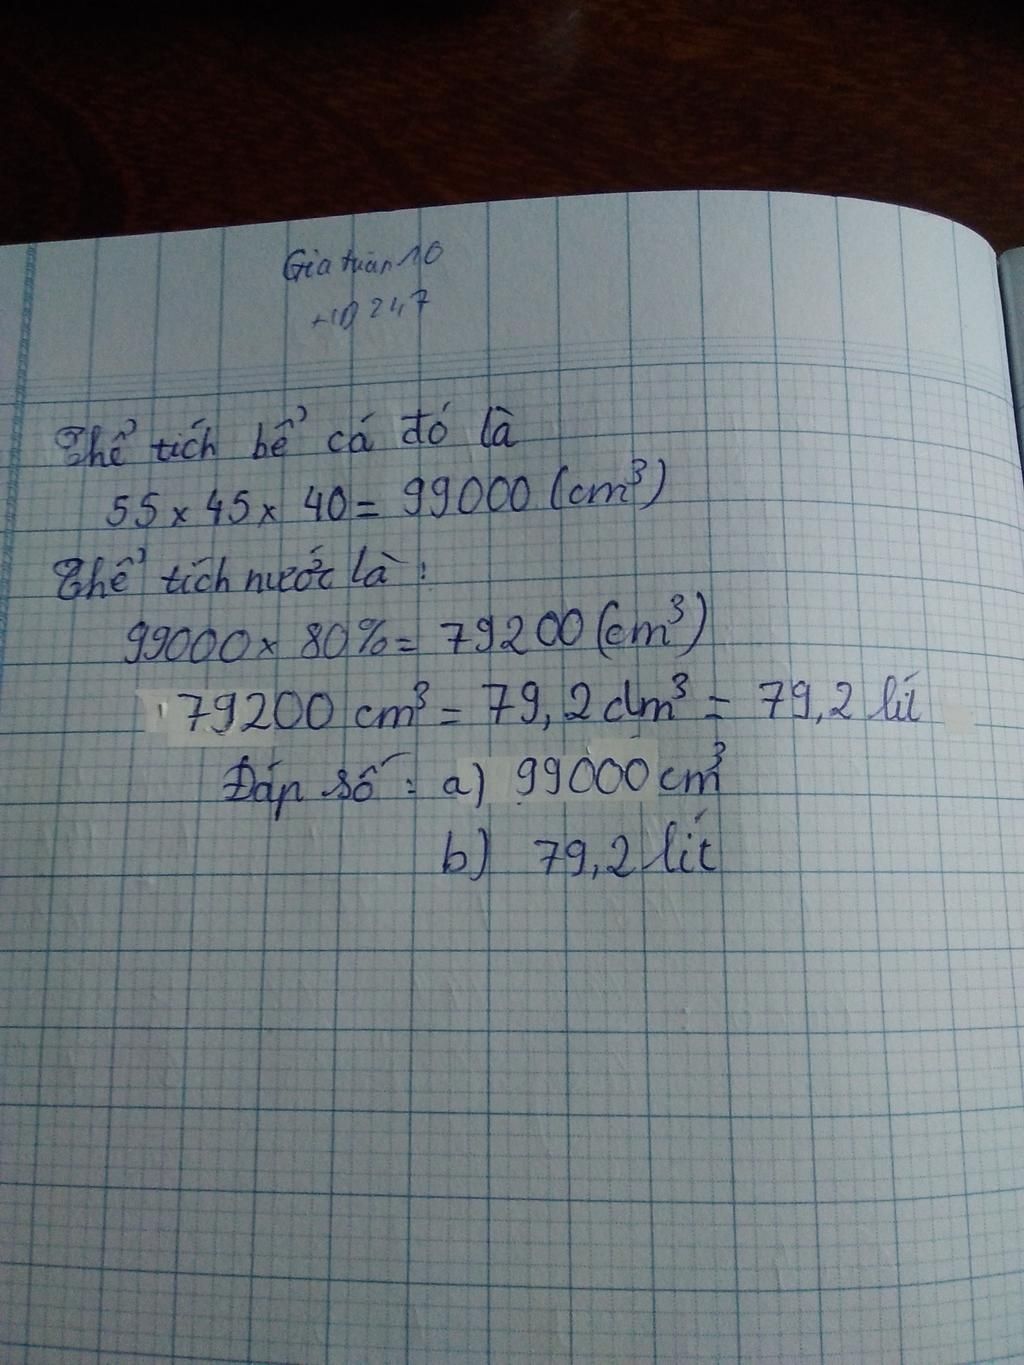 Gia tuân 10
247
Thể tích bể cá đó là
55 x 45 x 40 = 99000 (cm³)
Thể tích nước là :
99000 x 80% = 79200 (cm³)
79200 cm³ = 79,2 dm³ = 79,2 lít
Đáp số : a) 99000 cm³
b) 79,2 lít